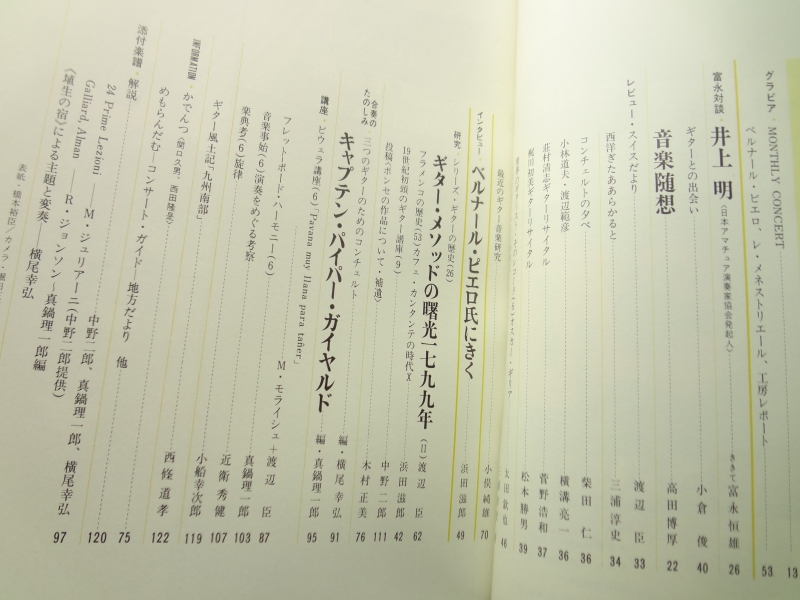 グラビア・MONTHLY CONCERT 13
ベルナール・ピエロ、レ・メネストリエール、工房レポート 53
富永対談・井上 明〈日本アマチュア演奏家協会発起人〉 ききて 富永恒雄 26
ギターとの出会い 小倉 俊 40
音楽随想 高田博厚 22
レビュー・スイスだより 渡辺 臣 33
西洋ぎたああらかると 三浦淳史 34
コンチェルトの夕べ 柴田 仁 36
小林道夫・渡辺範彦 横溝亮一 36
荘村清志ギターリサイタル 菅野浩和 37
梶川初美ギターリサイタル 松本勝男 39
46
最近のギター音楽研究 小俣純雄 70
インタビュー・ベルナール・ピエロ氏にきく 浜田滋郎 49
研究・シリーズ・ギターの歴史(26)
ギター・メソッドの曙光一七九九年(II) 渡辺 臣 62
フラメンコの歴史(53)カフェ・カンタンテの時代X 浜田滋郎 42
19世紀初頭のギター譜庫(9) 中野二郎 111
投稿〈ポンセの作品について・補遺〉 木村正美 76
合奏のたのしみ 三つのギターのためのコンチェルト 編・横尾幸弘 91
キャプテン・パイパー・ガイヤルド 編・真鍋理一郎 95
講座・ビウェラ講座(6)「Pavana muy llana para tañer」
フレットボード・ハーモニー(6) M・モライシュ+渡辺 臣 87
音楽事始(6)演奏をめぐる考察 真鍋理一郎 103
楽典考(6)旋律 近衛秀健 107
ギター風土記「九州南部」 小船幸次郎 119
INFORMATION・かでんつ(関口久男・西田隆是) 西條道孝 122
めもらんだむ—コンサート・ガイド—地方だより 他 75
添付楽譜・解説 中野二郎、真鍋理一郎、横尾幸弘 120
24 Prime Lezioni M・ジュリアーニ(中野二郎提供)
Galliard, Alman R・ジョンソン—真鍋理一郎編
《埴生の宿》による主題と変奏—横尾幸弘 97
表紙・橋本裕臣/カメラ・